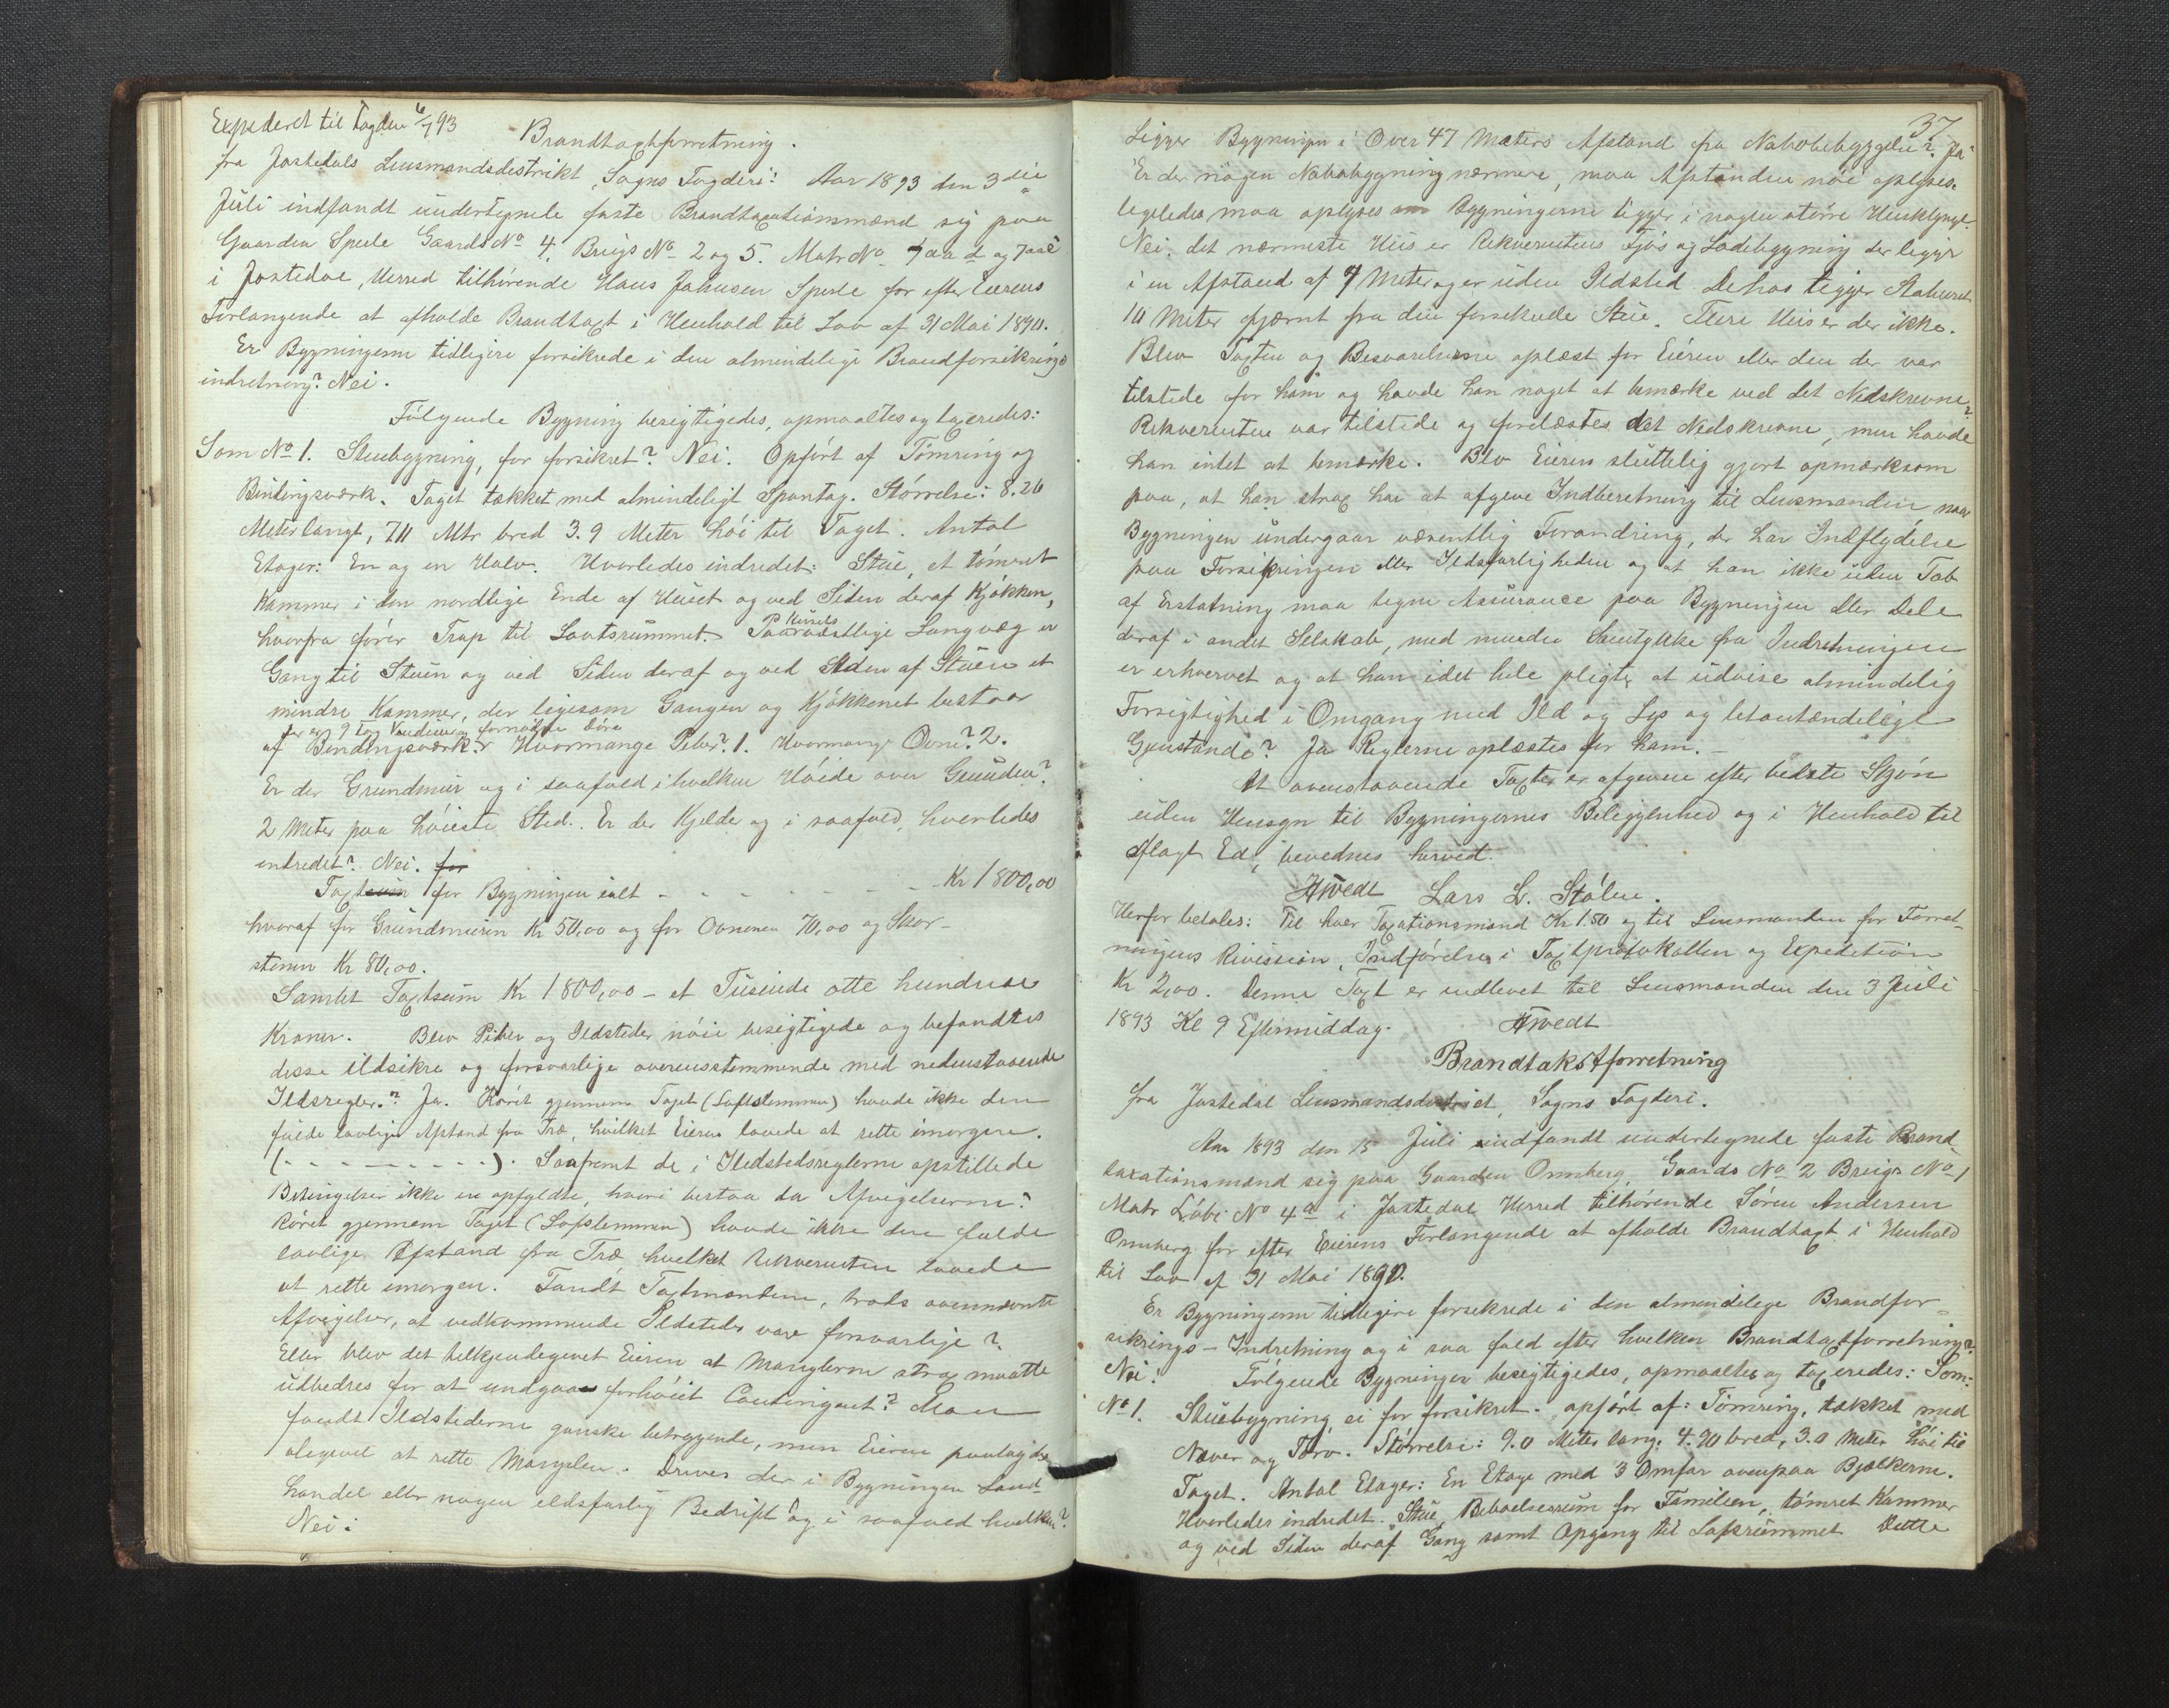 Expederet til Fogden 6/7 93
Brandtaxtforretning.
fra Jostedals Lensmandsdestrikt, Sogns Fogderi: Aar 1893 den 3die
Juli indfandt undertegnede faste Brandtaxationsmænd sig paa
Gaarden Sperle Gaards No 4. Brugs No 2 og 5. Matr No 7aad og 7aae
i Jostedal, Herred tilhørende Hans Johnsen Sperle for efter Eierens
Forlangende at afholde Brandtaxt i Henhold til Lov af 31 Mai 1890.
Er Bygningerne tidligere forsikrede i den almindelige Brandforsikrings
indretning? Nei.
Følgende Bygning besigtigedes, opmaaltes og taxeredes:
Som No 1. Stuebygning, før forsikret? Nei. Opført af Tømring og
Bindingsværk. Taget tækket med almindeligt Spontag. Størrelse: 8.20
Meter langt, 7.0 Mtr bred 3.9 Meter høi til Taget. Antal
Etager: En og en Halv. Hvorledes indredet: Stue, et tømret
Kammer i den nordlige Ende af Huset og ved Siden deraf Kjøkken,
hvorfra fører Trap til Loftsrummet. Paa Husets vestlige Langvæg er
Gang til Stuen og ved Siden deraf og ved Siden af Stuen et
mindre Kammer, der ligesom Gangen og Kjøkkenet bestaar
Der er 9 Fag Vinduer og fornødne Døre
af Bindingsværk. Hvormange Piber? 1. Hvormange Ovne? 2.
Er der Grundmur og i saafald i hvilken Høide over Grunden?
2 Meter paa høieste Sted. Er der Kjelder og i saafald, hvorledes
indredet? Nei. for
Taxtsum for Bygningen ialt - - - - - - - - Kr 1800,00
hvoraf for Grundmuren Kr 50,00 og for Ovnene 70,00 og Skor-
stenen Kr 80,00.
Samlet Taxtsum Kr 1800,00 - et Tusinde otte hundrede
Kroner. Blev Piber og Ildsteder nøie besigtigede og befandtes
disse ildsikre og forsvarlige overensstemmende med nedenstaaende
Ildsregler.? Ja. Røret gjennem Taget (Loftslemmen) havde ikke den
fulde lovlige Afstand fra Træ, hvilket Eieren lovede at rette imorgen.
(- - - - - - - - -). Saafremt de i Ildstedsreglerne opstillede
Betingelser ikke er opfyldte, hvori bestaa da Afvigelserne?
Røret gjennem Taget (Loftslemmen) havde ikke den fulde
lovlige Afstand fra Træ hvilket Rekvirenten lovede
at rette imorgen. Fandt Taxtmændene, trods ovennævnte
Afvigelser, at vedkommende Ildsteder vare forsvarlige?
Eller blev det tilkjendegivet Eieren at Manglerne strax maatte
udbedres for at undgaaes forhøiet Contingent? Man
fandt Ildstederne ganske betryggende, men Eieren paalagdes
alegevel at rette Manglen. Drives der i Bygningen Land-
handel eller nogen ildsfarlig Bedrift og i saafald hvilken?
Nei:
37
Ligger Bygningen i Over 47 Meters Afstand fra Nabobebyggelse? Ja
Er der nogen Nabobygning nærmere, maa Afstanden nøie oplyses.
ligeledes maa oplyses om Bygningerne ligger i nogen større Husklynge.
Nei. det nærmeste Hus er Rekvirentens Fjøs og Ladebygning der ligger
i en Afstand af 7 Meter og er uden Ildsted. Dehos ligger Staburet
10 Meter fjærnt fra den forsikrede Stue. Flere Huse er der ikke.
Blev Taxten og Besvarelserne oplæst for Eieren eller den der var
tilstede for ham og havde han noget at bemærke ved det Nedskrevne?
Rekvirenten var tilstede og forelæstes det Nedskrevne, men havde
han intet at bemærke. Blev Eieren sluttelig gjort opmærksom
paa, at han strax har at afgive Indberetning til Lensmanden, naar
Bygningen undergaar væsentlig Forandring, der har Indflydelse
paa Forsikringen eller Ildsfarligheden og at han ikke uden Tab
af Erstatning maa tegne Assurance paa Bygningen eller Dele
deraf i andet Selskab, med mindre Samtykke fra Indretningen
er erhvervet og at han idet hele pligter at udvise almindelig
Forsigtighed i Omgang med Ild og Lys og letantændelige
Gjenstande? Ja Reglerne oplæstes for ham. -
At ovenstaaende Taxter er afgivne efter bedste Skjøn
uden Hensyn til Bygningernes Beliggenhed og i Henhold til
aflagt Ed, bevidnes herved.
Lars L. Stølen.
Herfor betales: Til hver Taxationsmand Kr 1.50 og til Lensmanden for Forret-
ningens Revission, Indførelse i Taxtprotokollen og Expedition
Kr 2,00. Denne Taxt er indlevet til Lensmanden den 3 Juli
1893 Kl 9 Eftermiddag.
Brandtakstforretning
fra Jostedal Lensmandsdistrict, Sogns Fogderi.
Aar 1893 den 15 Juli indfandt undertegnede faste Brand-
taxationsmænd sig paa Gaarden Ormberg, Gaards No 2 Brugs No 1
Matr Løbe No 4a i Jostedal Herred tilhørende Søren Andersen
Ormberg for efter Eierens Forlangende at afholde Brandtaxt i Henhold
til Lov af 31 Mai 1890.
Er Bygningerne tidligere forsekrede i den almindelige Brandfor-
sikrings-Indretning og i saa fald efter hvilken Brandtaxtforretning?
Nei. Følgende Bygninger besigtigedes, opmaaltes og taxeredes: Som:
No 1. Stuebygning ei før forsikret. opført af: Tømring, tækket med
Næver og Tørv. Størrelse: 9.0 Meter lang. 4.90 bred, 3.0 Meter høi til
Taget. Antal Etager: En Etage med 3 Omfar ovenpaa Bjelkerne.
Hvorledes indredet. Stue, Beboelsesrum for Familien, tømret Kammer
og ved Siden deraf Gang samt Opgang til Loftsrummet Dette